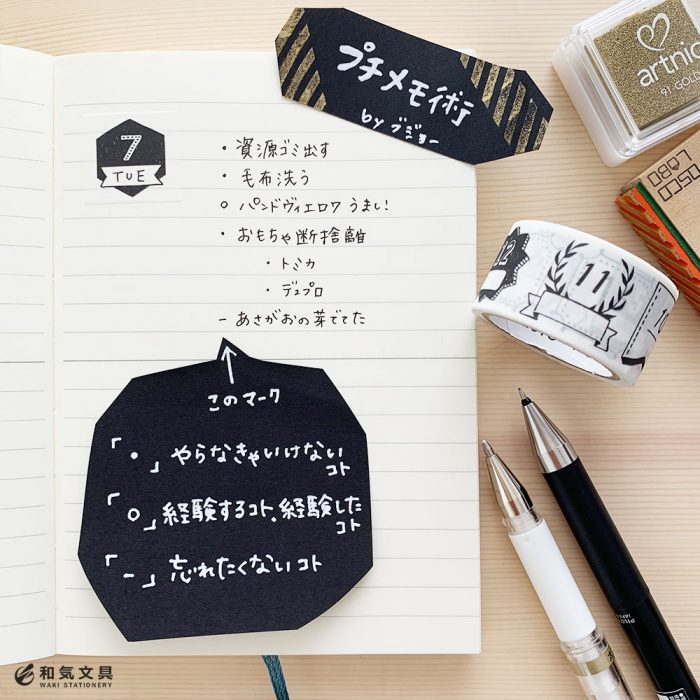 プチメモ術
by ブジョー
artnic
91 GOL
OSCO
LABO
7
TUE
・資源ゴミ出す
・毛布洗う
○ パンドヴィエロワ うまい!
・おもちゃ断捨離
・トミカ
・デュプロ
- あさがおの芽でてた
12
11
このマーク
「・」やらなきゃいけない
コト
「○」経験するコト、経験した
コト
「-」忘れたくないコト
和気文具
WAKI STATIONERY